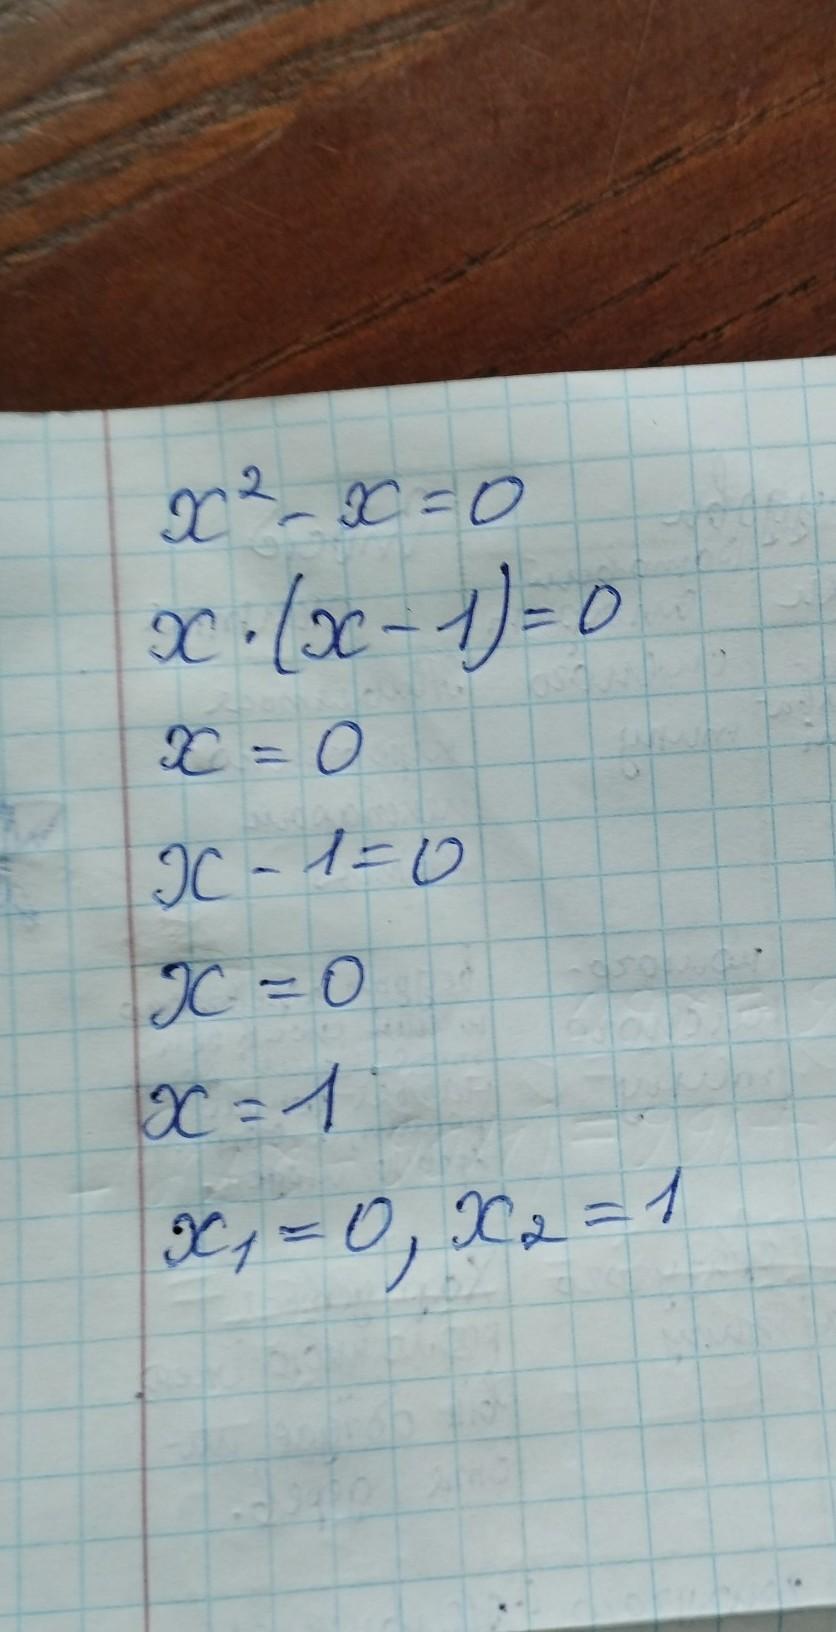 x² - x = 0
x · (x - 1) = 0
x = 0
x - 1 = 0
x = 0
x = 1
x₁ = 0, x₂ = 1